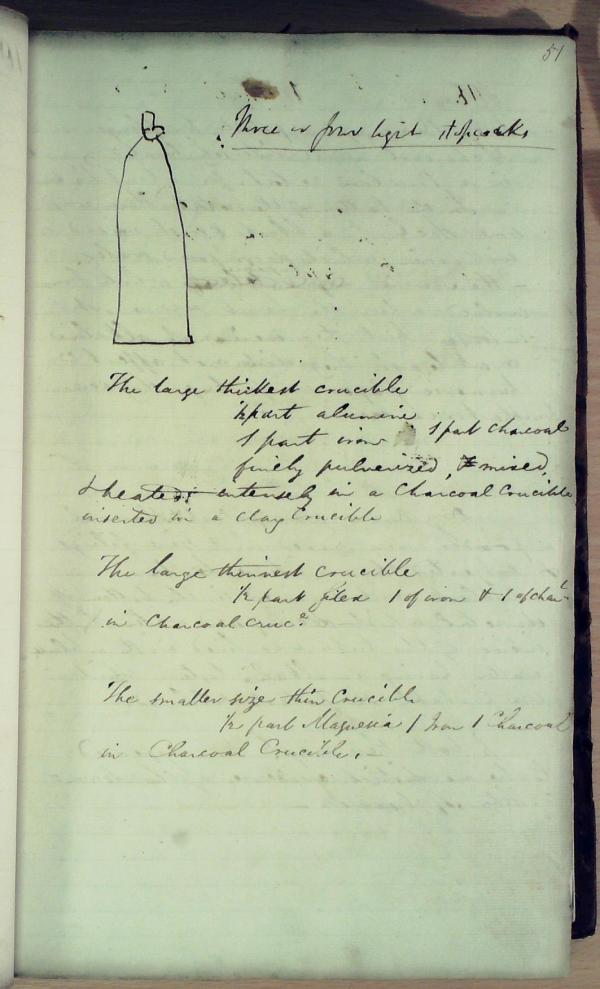 51
Three or four light stopcocks
The large thickest crucible
½ part alumine
1 part iron 1 part charcoal
finely pulverized, & mixed,
& heated intensely in a Charcoal Crucible
inserted in a Clay Crucible
The large thinnest crucible
½ part silex 1 of iron & 1 of char-
in Charcoal cruce.
The smaller size thin Crucible
½ part Magnesia 1 Iron 1 Charcoal
in Charcoal Crucible.